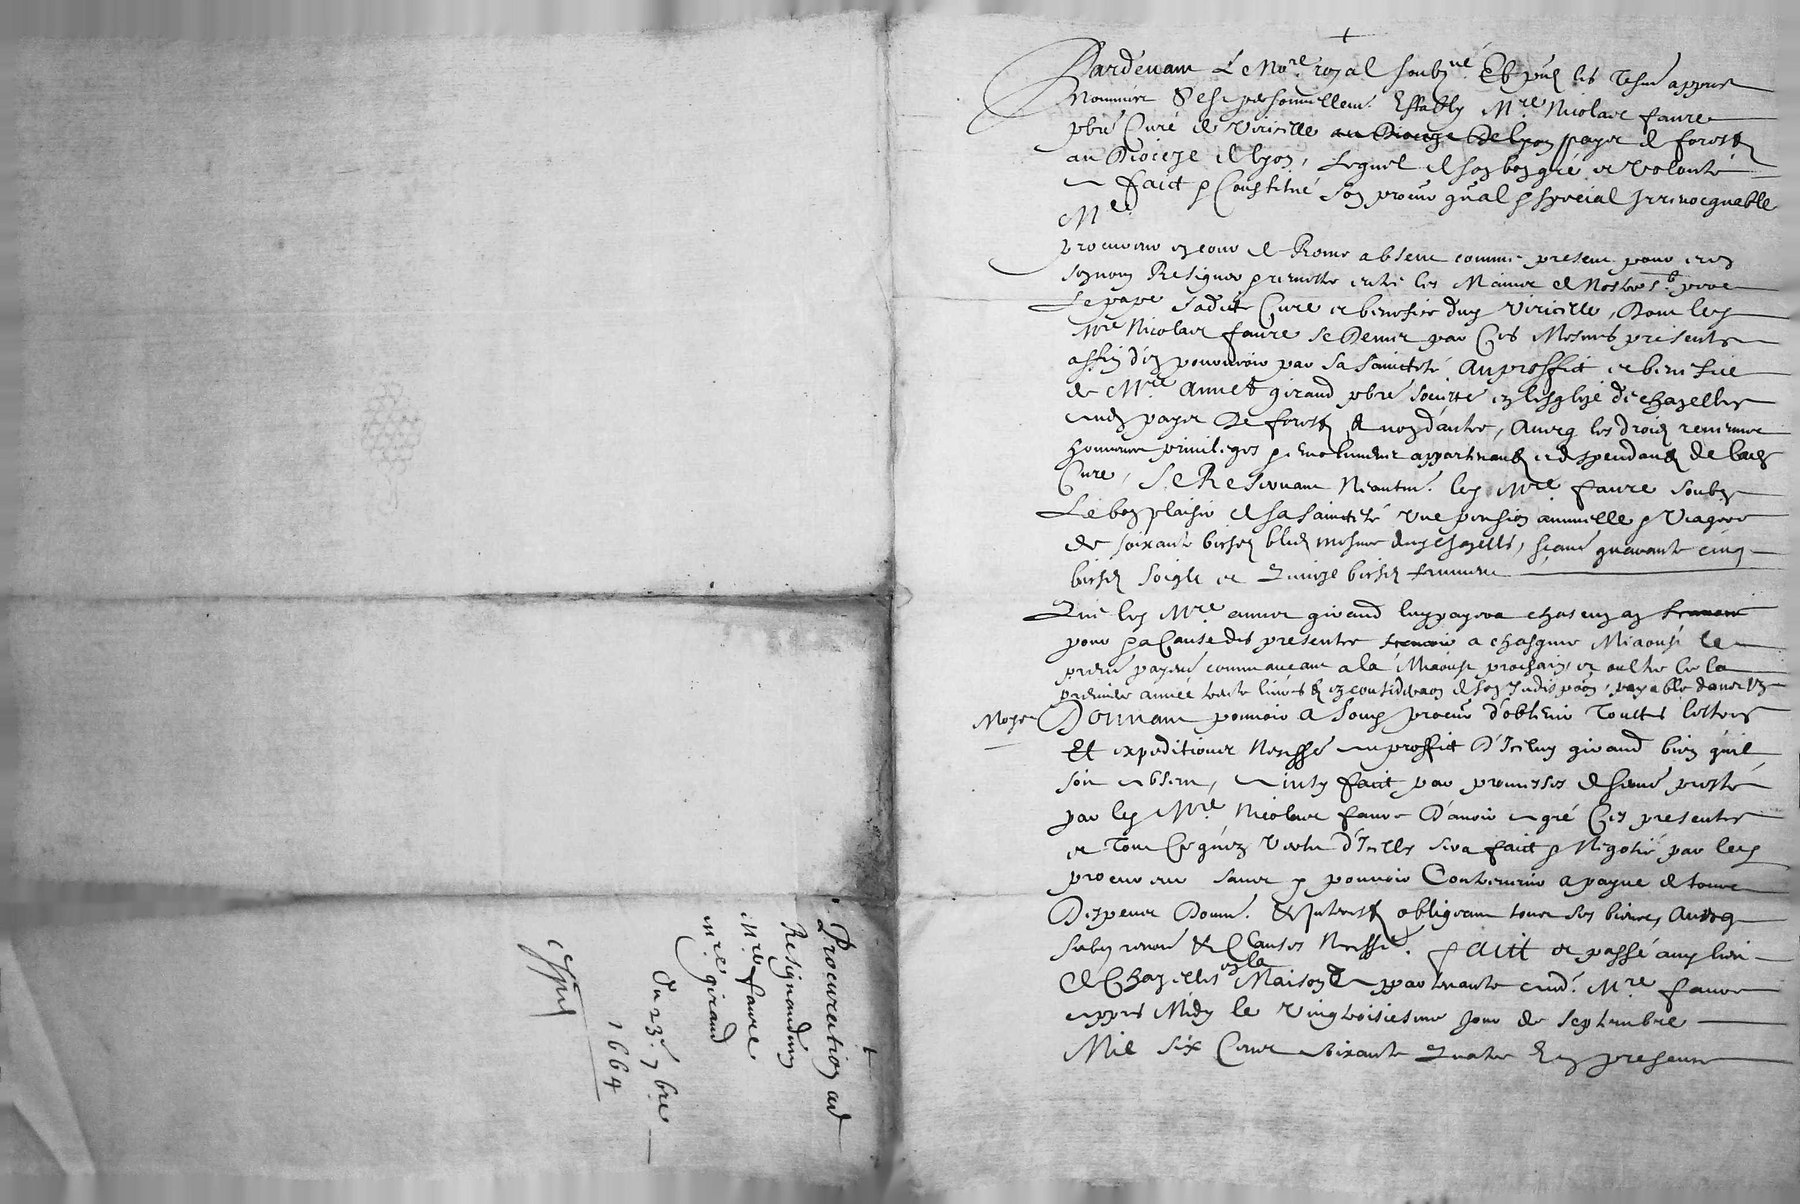 +
Pardevant Le No.re royal soubz.né Et pñs les tesm appres
Nommés S'est personnellem.t Estably M.re Nicolas faure
pbre Curé de Viricelle au Dioceze De lyon payes de forestz
au Dioceze de lyon, Lequel de son bon gré et volonté
a faict & Constitué son procur gñal & special Irrevocquable
M.re
procureur en cour de Rome absent comme present pour et en
son nom Resigner & remettre entre les Mains de Nostre S.t pere
Le pape sadite Cure et benefice dud Viricelle, Dont led
M.re Nicolas faure se Demet par Ces Mesmes presentes
affin d'en pourvoir par sa Saincteté Au proffict et benefice
de M.re Annet girand pbre societté en l'esglize de chazelles
aud payes De forestz & non d'autre, Avecq les droictz revenus
honneurs privileges & emolumens appartenantz et despendantz de lad
Cure, Se Reservant Neantm. led M.re faure soubz
Le bon plaisir de sa Saincteté Une pension annuelle & Viagere
de soixante bichetz bledz mesure dud chazelles, sçavoir quarante cinq
bichetz soigle et Quinze bichetz froment
Que led M.re annet girand luy payera chascun an
pour & a Cause des presentes a chasque Miaoust le
premier payem commançant a la Miaoust prochain, et oultre ce la
premiere année trente livres en consideraon de son Indispoon, payable
Moyen Donnant pouvoir a sond procur d'obtenir Touttes lettres
Et expeditions Necess.e au proffict D'Iceluy girand bien qu'il
soit absent, ainsy faict par promesses de serme presté
par led M.re Nicolas faure D'avoir a gré Ces presentes
et Tout Ce qu'en Vertu d'Icelles sera faict & Negotié par led
procureur sans y pouvoir Contrevenir a payne de tous
Despens Domm. & Interestz obligeant tous ses biens, Avecq
submi renon & Clauses Necess. faict et passé aud lieu
de Chazelles en la Maison appartenante aud. M.re faure
appres Midy le Vingtroisiesme jour de Septembre
Mil six Cent soixante Quatre En presence
Procuration ad
Resignandum
M.re faure
M.re girand
Du 23.e 7bre
1664